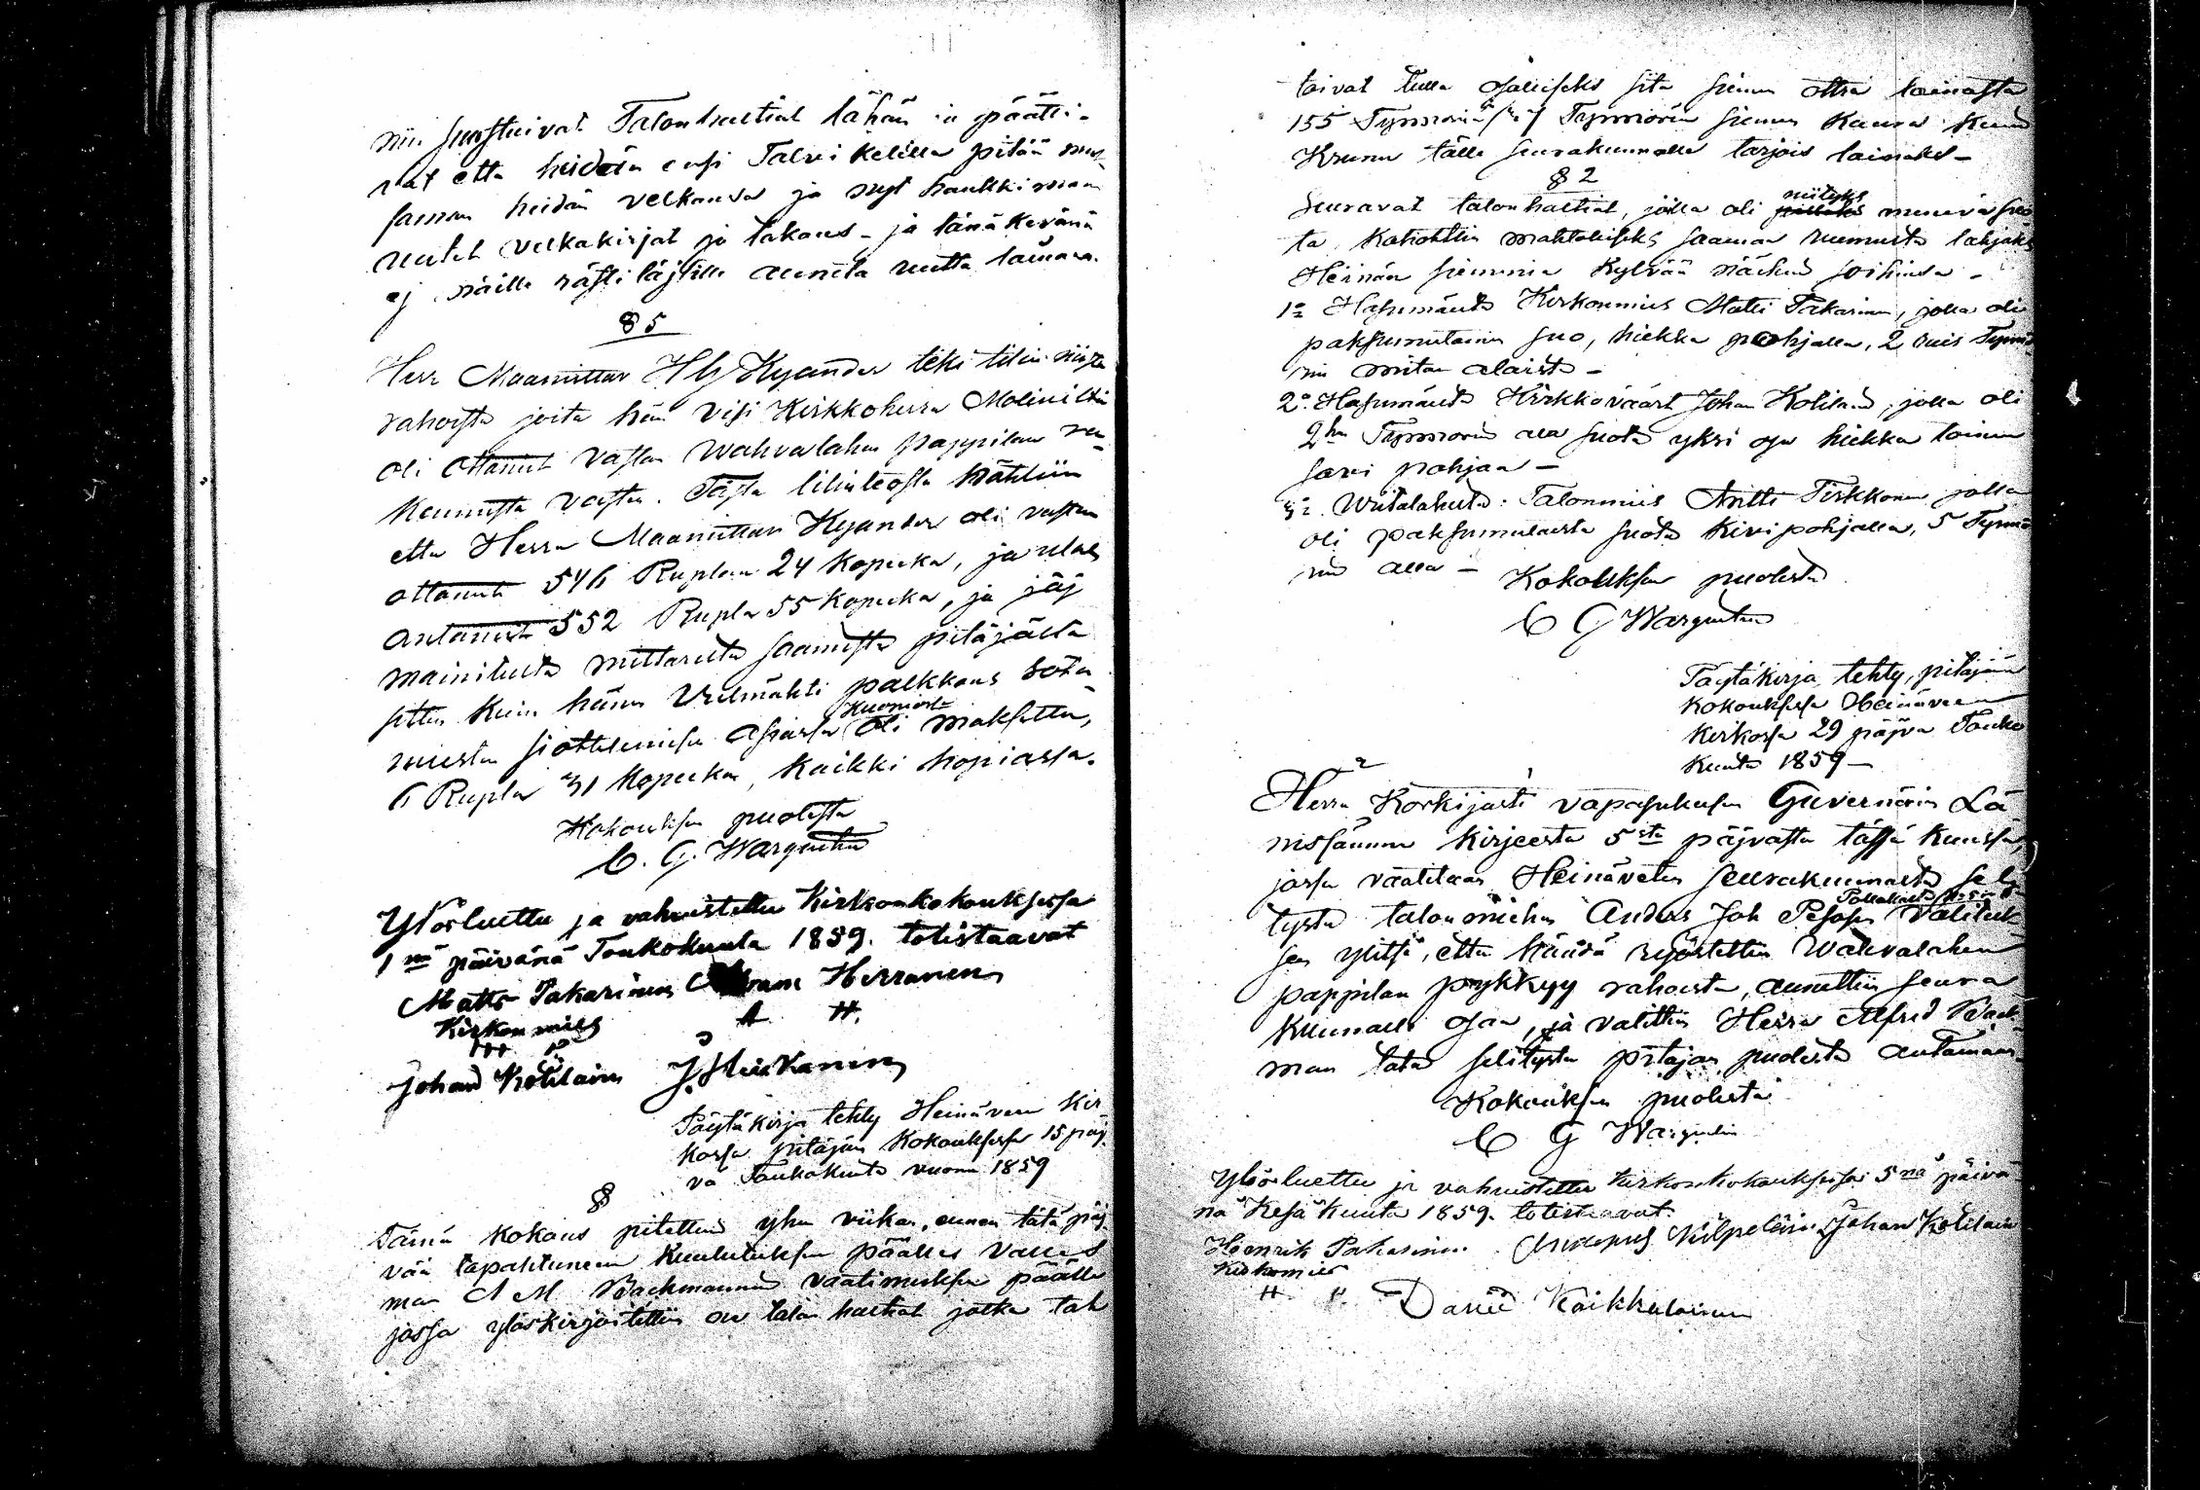 niin suostuivat Talonhaltiat tähän ja päätti-
vät että heidän ensi Talvi kelillä pitää mak-
saman heidän velkansa ja nyt hankkimaan
uudet velkakirjat ja takaus - ja tänä kevänä
ej näille rästiläjsille anneta uutta lainaa.
§ 5
Herr Maamittari Hlg Kyander teki tilin niistä
rahoista joita hän Visi Kirkkoherra Molinilta
oli ottanut vastan Wahvalahen pappilan ra-
kennusta vasten. Tästä tilinteosta nähtiin
että Herra Maamittari Kyander oli vastan
ottanut 546 Ruplaa 24 kopeeka, ja ulos
antanut 552 Rupla 55 kopeeka, ja jäj
mainitulta mittarilta saamista pitäjältä
sitten kuin hänen palkkaus sota
miesten siottelemisen asiassa Kuopiosta oli maksettu,
6 Rupla 31 kopeeka, kaikki hopiassa.
Kokouksen puolesta
C. G. Wargentin
Ylösluettu ja vahvistettu Kirkonkokouksessa
1nä päivänä Toukokuuta 1859. totistaavat
Matts Pakarinen Abram Hirvonen
Kirkonmies A H.
Johan Kotilainen J. Heiskanen
Päytäkirja tehty Heinäveen Kir
kossa pitäjän Kokouksessa 15 päj
vä Toukokuuta vuonna 1859
§
Tämä kokous pitettiin yhen viikon, ennen tätä päj
vää tapahtuneen kuulutuksen päälle Valles
man A M Backmannin vaatimuksen päälle
jossa ylöskirjoitettiin ne talon haltiat jotka tah
toivat tulla osalliseks sitä siemen ottia lainasta
155 Tynnöriä Tynnörin siemen Kaura kuin
Kruunu tälle seurakunnalle tarjois lainaks -
§ 2
Seuravat talonhaltiat, jolla oli niityks menevä suo
ta, katsottiin mahtoliseks saaman Ruunusta lahjaks
Heinän siemeniä kylvää näihin soihinsa -
1o Hasumäestä Kirkonmies Matti Pakarinen, jolla oli
paksumutainen suo, hiekka pohjalla, 2 Tynnö
rin mitan alaista -
2o Hasumäestä Kirkkoväärt Johan Kotilain, jolla oli
2hen Tynnörin ala suota yksi osa hiekka toinen
savi pohjaa -
3o. Wiitalahesta: Talonmies Antti Tirkkonen jolla
oli paksumutaista suota Kivi pohjalla, 5 Tynnö
rin alla - Kokouksen puolesta
C G Wargentin
Päytäkirja tehty, pitäjän
kokouksessa Heinäveen
Kirkossa 29 päjvä Touko
kuuta 1859 -
Herra Korkijasti vapasukusen Guvernörin Lä
nissämme kirjeestä 5stä päjvästä tässä kuussa,
jossa vaaditaan Heinäveten seurakunnasta seli
tystä talon miehen Anders Joh Pesosen valituk-
sen ylitse, että häädä ryöstettiin Wahvalahen
pappilan pykkyy rahoista, annettiin seura
kunnalle osan, ja valittiin Herra Alfred Back-
man tätä selitystä pitäjän puolesta antamaan
Kokouksen puolesta
C G Wargentin
Ylösluettu ja vahvistettu kirkonkokouksessa 5nä päivä-
nä Kesä Kuuta 1859. totistaavat.
Henrik Pakarinen. Anderus Kilpeläin Johan Kotilain
Kirkomies
H. P. David Kaikkulainen